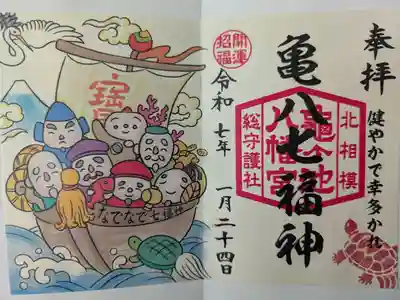 奉拝
健やかで幸多かれ
北相模
亀ヶ池
八幡宮
総守護社
亀八七福神
開運
招福
令和七年 一月二十四日
寶
なでなで七福神